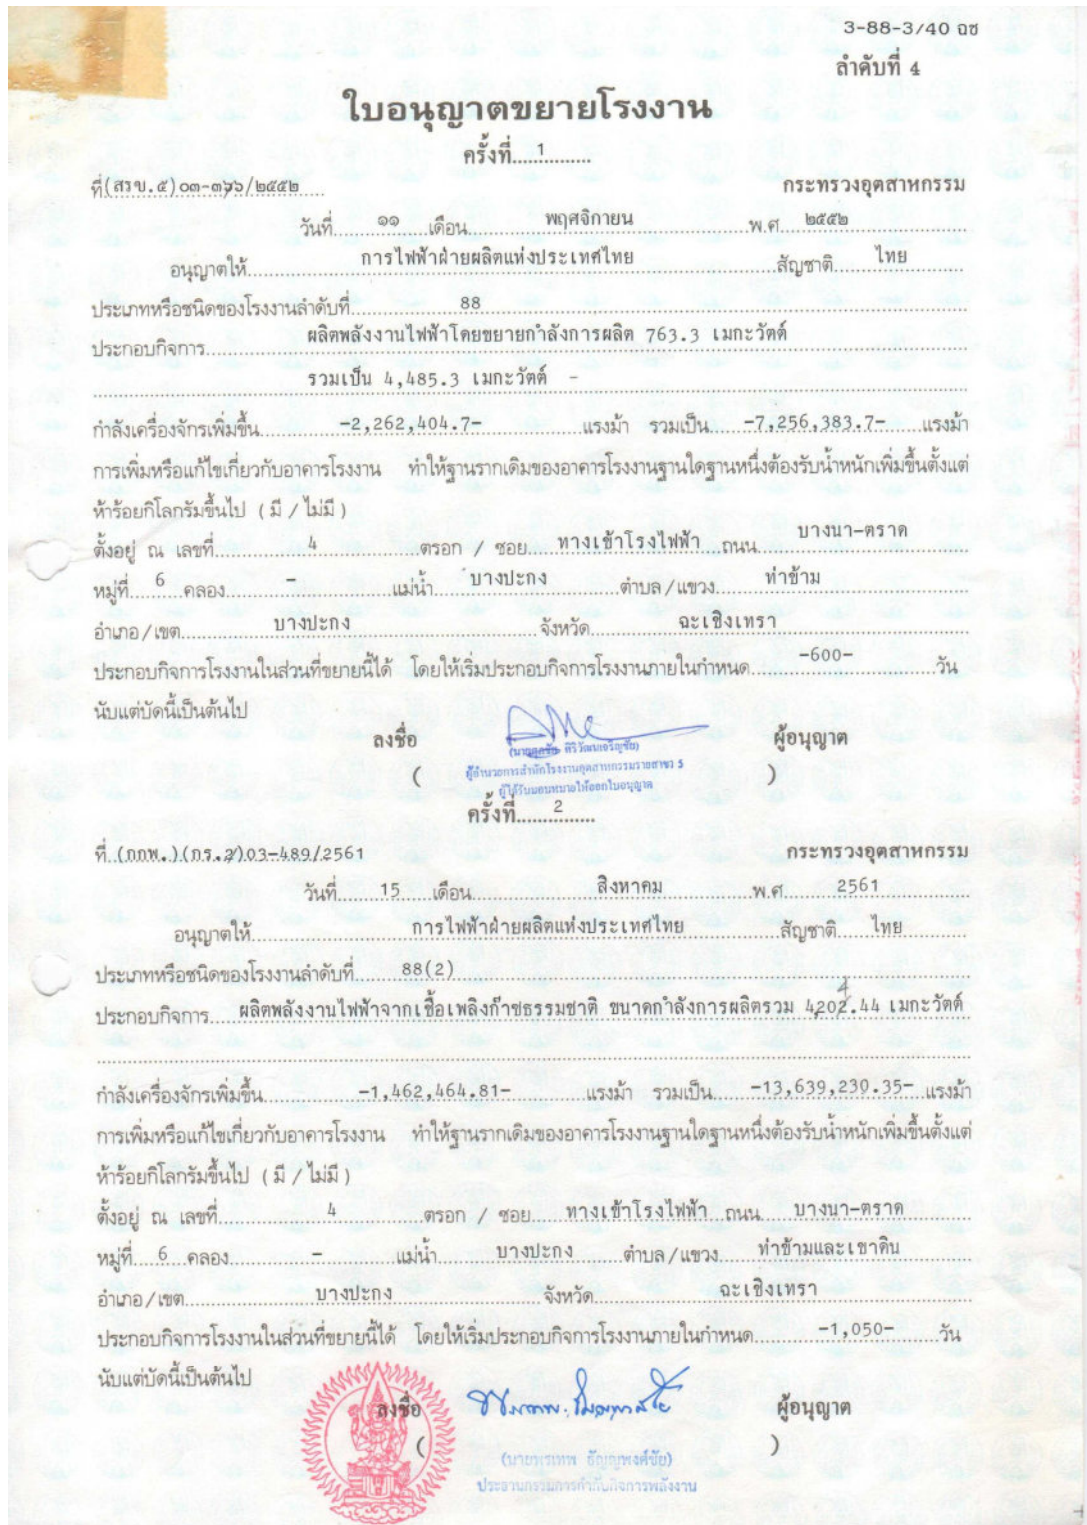 3-88-3/40 ฉช
ลำดับที่ 4
ใบอนุญาตขยายโรงงาน
ครั้งที่.....1.........
ที่(สรข.๕)๐๓-๓๖/๒๕๕๒.....
กระทรวงอุตสาหกรรม
วันที่.....๑๑.....เดือน.....พฤศจิกายน.....พ.ศ.....๒๕๕๒
อนุญาตให้.....การไฟฟ้าฝ่ายผลิตแห่งประเทศไทย.....สัญชาติ.....ไทย.....
ประเภทหรือชนิดของโรงงานลำดับที่.....88.....
ประกอบกิจการ.....ผลิตพลังงานไฟฟ้าโดยขยายกำลังการผลิต 763.3 เมกะวัตต์
รวมเป็น 4,485.3 เมกะวัตต์ -
กำลังเครื่องจักรเพิ่มขึ้น.....-2,262,404.7-.....แรงม้า รวมเป็น.....-7,256,383.7-.....แรงม้า
การเพิ่มหรือแก้ไขเกี่ยวกับอาคารโรงงาน ทำให้ฐานรากเดิมของอาคารโรงงานฐานใดฐานหนึ่งต้องรับน้ำหนักเพิ่มขึ้นตั้งแต่
ห้าร้อยกิโลกรัมขึ้นไป (มี / ไม่มี)
ตั้งอยู่ ณ เลขที่.....4.....ตรอก / ซอย.....ทางเข้าโรงไฟฟ้า...ถนน.....บางนา-ตราด
หมู่ที่.....6...คลอง.....-.....แม่น้ำ.....บางปะกง.....ตำบล/แขวง.....ท่าข้าม
อำเภอ/เขต.....บางปะกง.....จังหวัด.....ฉะเชิงเทรา.....
ประกอบกิจการโรงงานในส่วนที่ขยายนี้ได้ โดยให้เริ่มประกอบกิจการโรงงานภายในกำหนด.....-600-.....วัน
นับแต่บัดนี้เป็นต้นไป
ลงชื่อ ผู้อนุญาต
( )
ผู้อำนวยการสำนักโรงงานอุตสาหกรรมรายสาขา 5
ผู้ได้รับมอบหมายให้ออกใบอนุญาต
ครั้งที่.....2.....
ที่ (กกพ.)(กร.2)03-489/2561
กระทรวงอุตสาหกรรม
วันที่.....15.....เดือน.....สิงหาคม.....พ.ศ.....2561
อนุญาตให้.....การไฟฟ้าฝ่ายผลิตแห่งประเทศไทย.....สัญชาติ.....ไทย.....
ประเภทหรือชนิดของโรงงานลำดับที่.....88(2).....
ประกอบกิจการ.....ผลิตพลังงานไฟฟ้าจากเชื้อเพลิงก๊าซธรรมชาติ ขนาดกำลังการผลิตรวม 4,202.44 เมกะวัตต์
กำลังเครื่องจักรเพิ่มขึ้น.....-1,462,464.81-.....แรงม้า รวมเป็น.....-13,639,230.35-...แรงม้า
การเพิ่มหรือแก้ไขเกี่ยวกับอาคารโรงงาน ทำให้ฐานรากเดิมของอาคารโรงงานฐานใดฐานหนึ่งต้องรับน้ำหนักเพิ่มขึ้นตั้งแต่
ห้าร้อยกิโลกรัมขึ้นไป (มี / ไม่มี)
ตั้งอยู่ ณ เลขที่.....4.....ตรอก / ซอย.....ทางเข้าโรงไฟฟ้า...ถนน.....บางนา-ตราด
หมู่ที่.....6...คลอง.....-.....แม่น้ำ.....บางปะกง.....ตำบล/แขวง.....ท่าข้ามและเขาดิน
อำเภอ/เขต.....บางปะกง.....จังหวัด.....ฉะเชิงเทรา.....
ประกอบกิจการโรงงานในส่วนที่ขยายนี้ได้ โดยให้เริ่มประกอบกิจการโรงงานภายในกำหนด.....-1,050-.....วัน
นับแต่บัดนี้เป็นต้นไป
ลงชื่อ ผู้อนุญาต
( )
(นายพรเทพ ธัญญพงศ์ชัย)
ประธานกรรมการกำกับกิจการพลังงาน